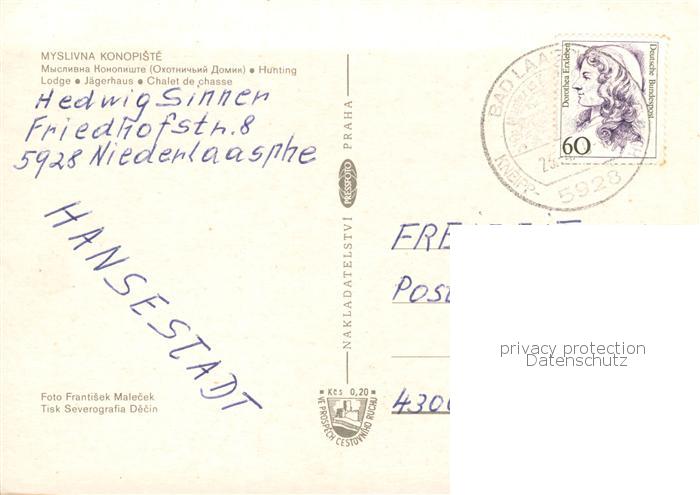 MYSLIVNA KONOPIŠTĚ
Мысливна Конопиште (Охотничьий Домик) • Hunting
Lodge • Jägerhaus • Chalet de chasse
Hedwig Sinner
Friedhofstr. 8
5928 Niederlaasphe
HANSESTADT
Foto František Maleček
Tisk Severografia Děčín
NAKLADATELSTVÍ PRESSFOTO PRAHA
Kčs 0,20
VE PROSPĚCH CESTOVNÍHO RUCHU
BAD LAAS
KNEIPP-
5928
Dorothea Erxleben
Deutsche Bundespost
60
FRE
Post
430
privacy protection
Datenschutz